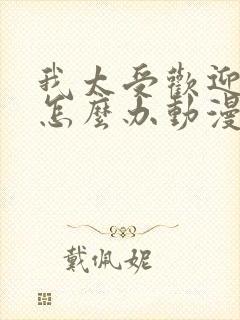 我太受歡迎
怎麼办動漫
戴佩妮